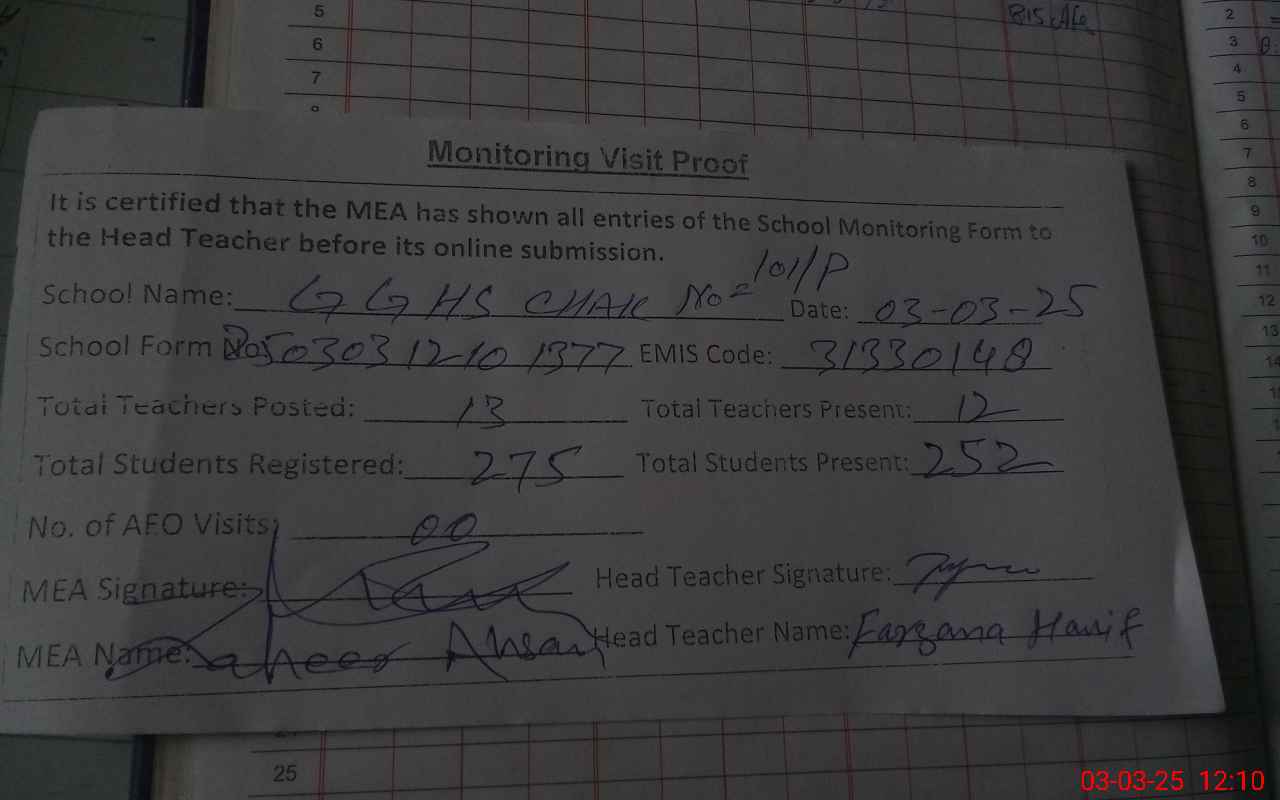 5
6
7
8
815
2
3
4
5
6
7
8
9
10
11
12
13
14
Monitoring Visit Proof
It is certified that the MEA has shown all entries of the School Monitoring Form to
the Head Teacher before its online submission.
School Name: GGHS CHAK No= 101/P Date: 03-03-25
School Form No 503031210 1377 EMIS Code: 31330148
Total Teachers Posted: 13 Total Teachers Present: 12
Total Students Registered: 275 Total Students Present: 252
No. of AEO Visits: 00
MEA Signature: Head Teacher Signature:
MEA Name: Ahsan Head Teacher Name: Farzana Hanif
25
03-03-25 12:10